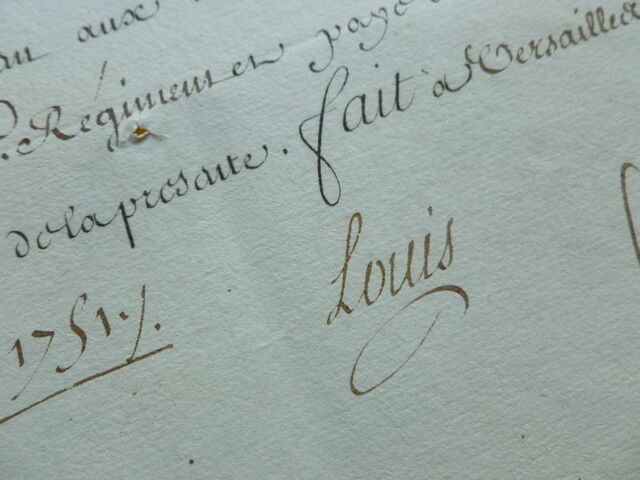 aux
Régiment et payé
de la presante. fait à Versailles
1751./. Louis